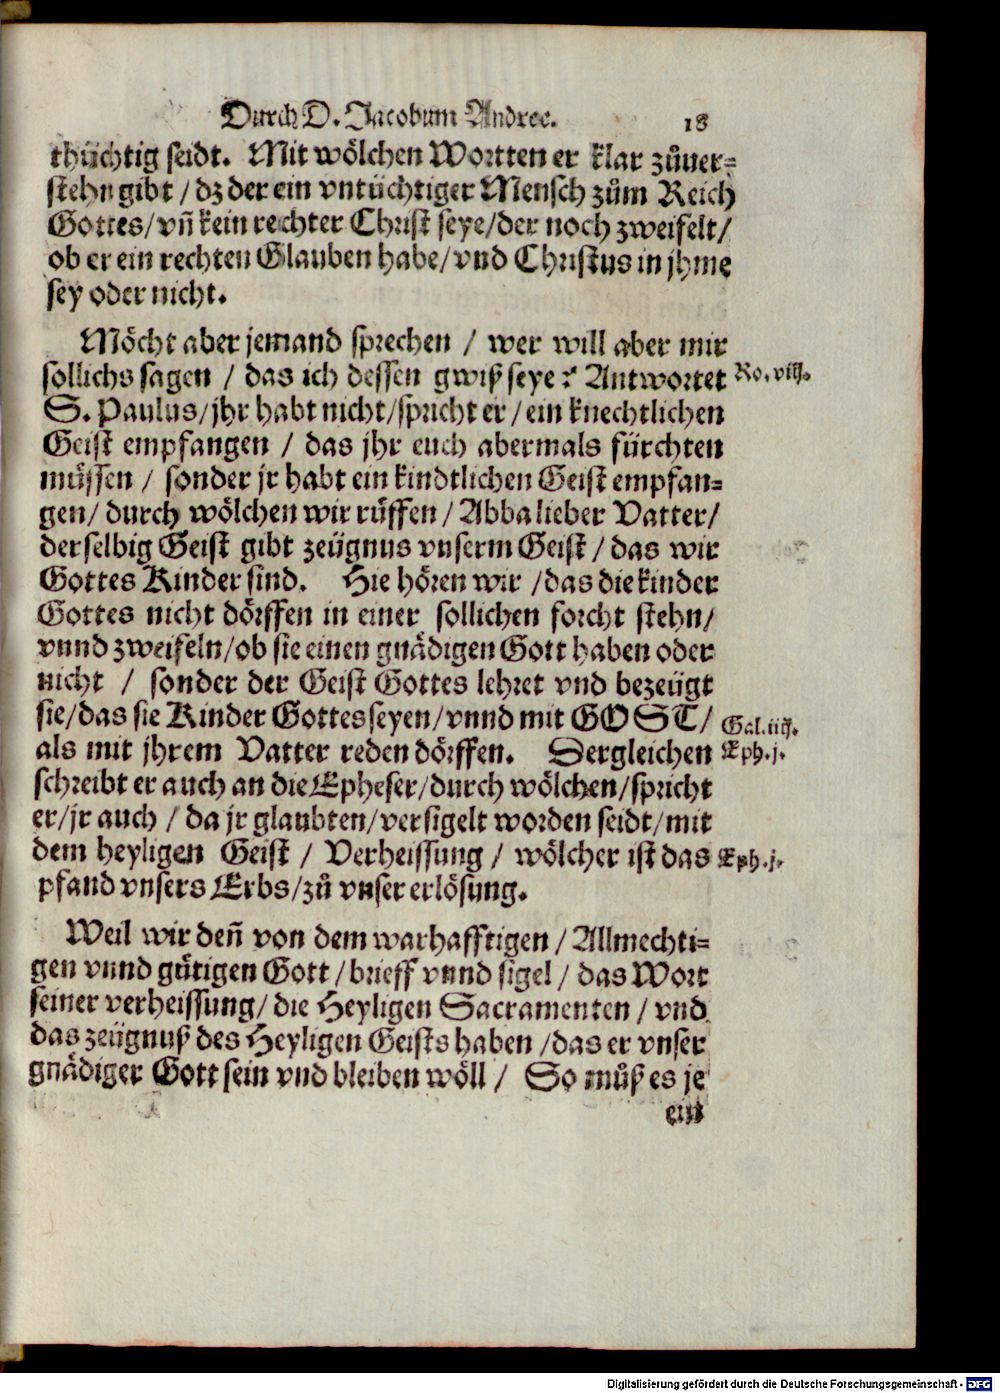 Durch D. Jacobum Andree. 18
thüchtig seidt. Mit wölchen Wortten er klar zůuer-
stehn gibt / dz der ein vntüchtiger Mensch zům Reich
Gottes / vñ kein rechter Christ seye / der noch zweifelt /
ob er ein rechten Glauben habe / vnd Christus in jhme
sey oder nicht.
Möcht aber jemand sprechen / wer will aber mir
sollichs sagen / das ich dessen gwiß seye? Antwortet
Ro. viij.
S. Paulus / jhr habt nicht / spricht er / ein knechtlichen
Geist empfangen / das jhr euch abermals fürchten
müssen / sonder jr habt ein kindtlichen Geist empfan-
gen / durch wölchen wir rüffen / Abba lieber Vatter /
derselbig Geist gibt zeügnus vnserm Geist / das wir
Gottes Kinder sind. Hie hören wir / das die kinder
Gottes nicht dörffen in einer sollichen forcht stehn /
vnnd zweifeln / ob sie einen gnädigen Gott haben oder
nicht / sonder der Geist Gottes lehret vnd bezeügt
sie / das sie Kinder Gottes seyen / vnnd mit GOTT /
Gal. iiij.
als mit jhrem Vatter reden dörffen. Dergleichen
Eph. j.
schreibt er auch an die Epheser / durch wölchen / spricht
er / jr auch / da jr glaubten / versigelt worden seidt / mit
dem heyligen Geist / Verheissung / wölcher ist das
Eph. j.
pfand vnsers Erbs / zů vnser erlösung.
Weil wir deñ von dem warhafftigen / Allmechti-
gen vnnd gůtigen Gott / brieff vnnd sigel / das Wort
seiner verheissung / die Heyligen Sacramenten / vnd
das zeügnuß des Heyligen Geists haben / das er vnser
gnädiger Gott sein vnd bleiben wöll / So můß es je
ein
Digitalisierung gefördert durch die Deutsche Forschungsgemeinschaft - DFG